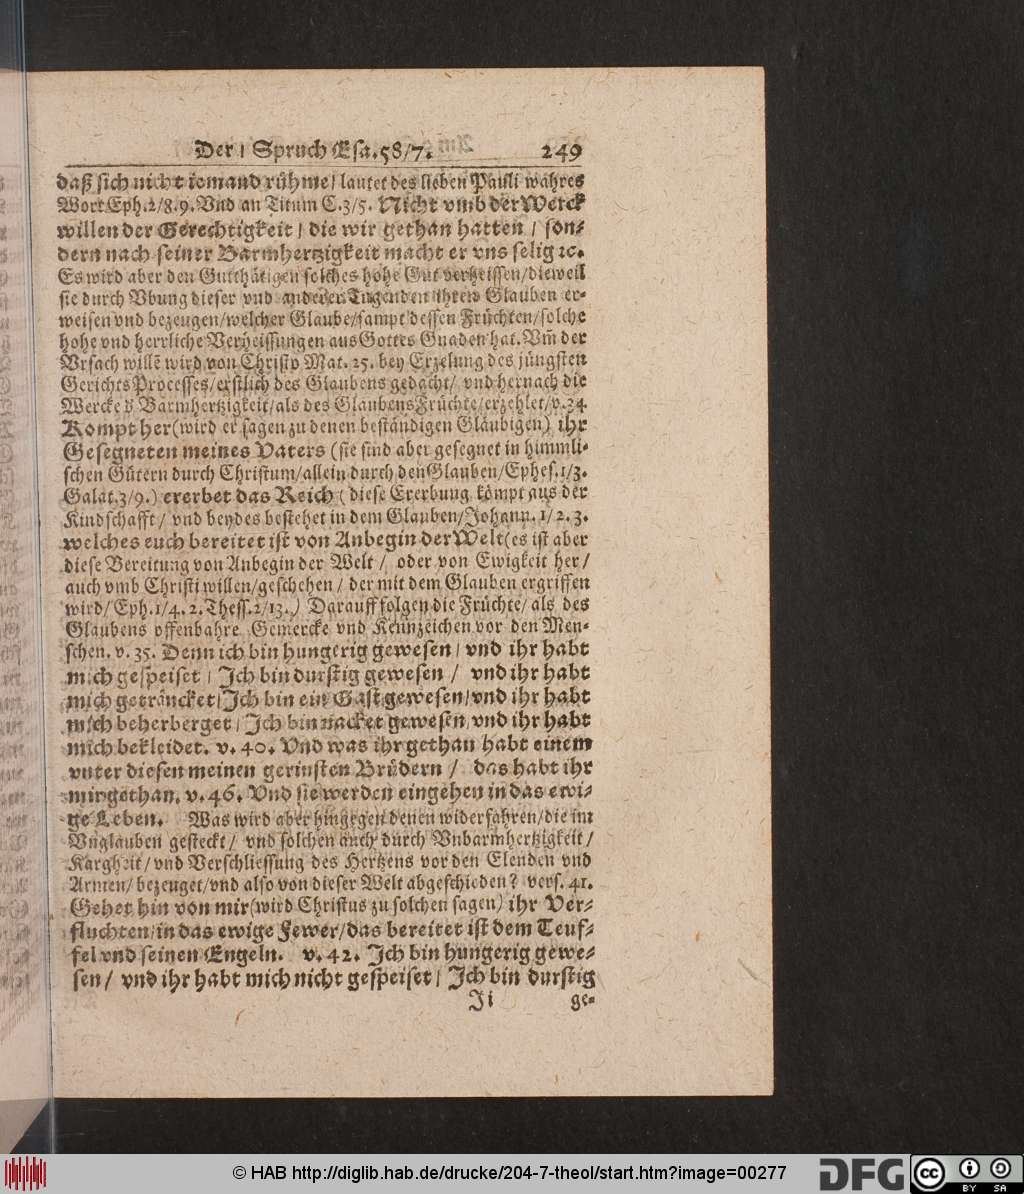 Der 1 Spruch Esa. 58/7. 249
daß sich nicht iemand rühme/ lautet des lieben Pauli wahres
Wort Eph. 2/8. 9. Vnd an Titum C. 3/5. Nicht vmb der Werck
willen der Gerechtigkeit/ die wir gethan hatten/ son-
dern nach seiner Barmhertzigkeit macht er vns selig ꝛc.
Es wird aber den Gutthätigen solches hohe Gut verheissen/ dieweil
sie durch Vbung dieser vnd anderer Tugenden ihren Glauben er-
weisen vnd bezeugen/ welcher Glaube/ sampt dessen Früchten/ solche
hohe vnd herrliche Verheissungen aus Gottes Gnaden hat. Vm̃ der
Vrsach willẽ wird von Christo Mat. 25. bey Erzelung des jüngsten
Gerichts Processes/ erstlich des Glaubens gedacht/ vnd hernach die
Wercke d' Barmhertzigkeit/ als des Glaubens Früchte/ erzehlet/ v. 34.
Kompt her (wird er sagen zu denen beständigen Gläubigen) ihr
Gesegneten meines Vaters (sie sind aber gesegnet in himmli-
schen Gütern durch Christum/ allein durch den Glauben/ Ephes. 1/3.
Galat. 3/9.) ererbet das Reich (diese Ererbung kömpt aus der
Kindschafft/ vnd beydes bestehet in dem Glauben/ Johann. 1/2. 3.
welches euch bereitet ist von Anbegin der Welt (es ist aber
diese Bereitung von Anbegin der Welt/ oder von Ewigkeit her/
auch vmb Christi willen/ geschehen/ der mit dem Glauben ergriffen
wird/ Eph. 1/4. 2. Thess. 2/13.) Darauff folgen die Früchte/ als des
Glaubens offenbahre Gemercke vnd Kennzeichen vor den Men-
schen. v. 35. Denn ich bin hungerig gewesen/ vnd ihr habt
mich gespeiset/ Jch bin durstig gewesen/ vnd ihr habt
mich geträncket/ Jch bin ein Gast gewesen/ vnd ihr habt
mich beherberget/ Jch bin nacket gewesen vnd ihr habt
mich bekleidet. v. 40. Vnd was ihr gethan habt einem
vnter diesen meinen gerinsten Brüdern/ das habt ihr
mir gethan. v. 46. Vnd sie werden eingehen in das ewi-
ge Leben. Was wird aber hingegen denen widerfahren/ die im
Vnglauben gesteckt/ vnd solchen auch durch Vnbarmhertzigkeit/
Kargheit/ vnd Verschliessung des Hertzens vor den Elenden vnd
Armen/ bezeuget/ vnd also von dieser Welt abgeschieden? vers. 41.
Gehet hin von mir (wird Christus zu solchen sagen) ihr Ver-
fluchten/ in das ewige Fewer/ das bereitet ist dem Teuf-
fel vnd seinen Engeln. v. 42. Jch bin hungerig gewe-
sen/ vnd ihr habt mich nicht gespeiset/ Jch bin durstig
Ji ge-
© HAB http://diglib.hab.de/drucke/204-7-theol/start.htm?image=00277
DFG
cc BY SA